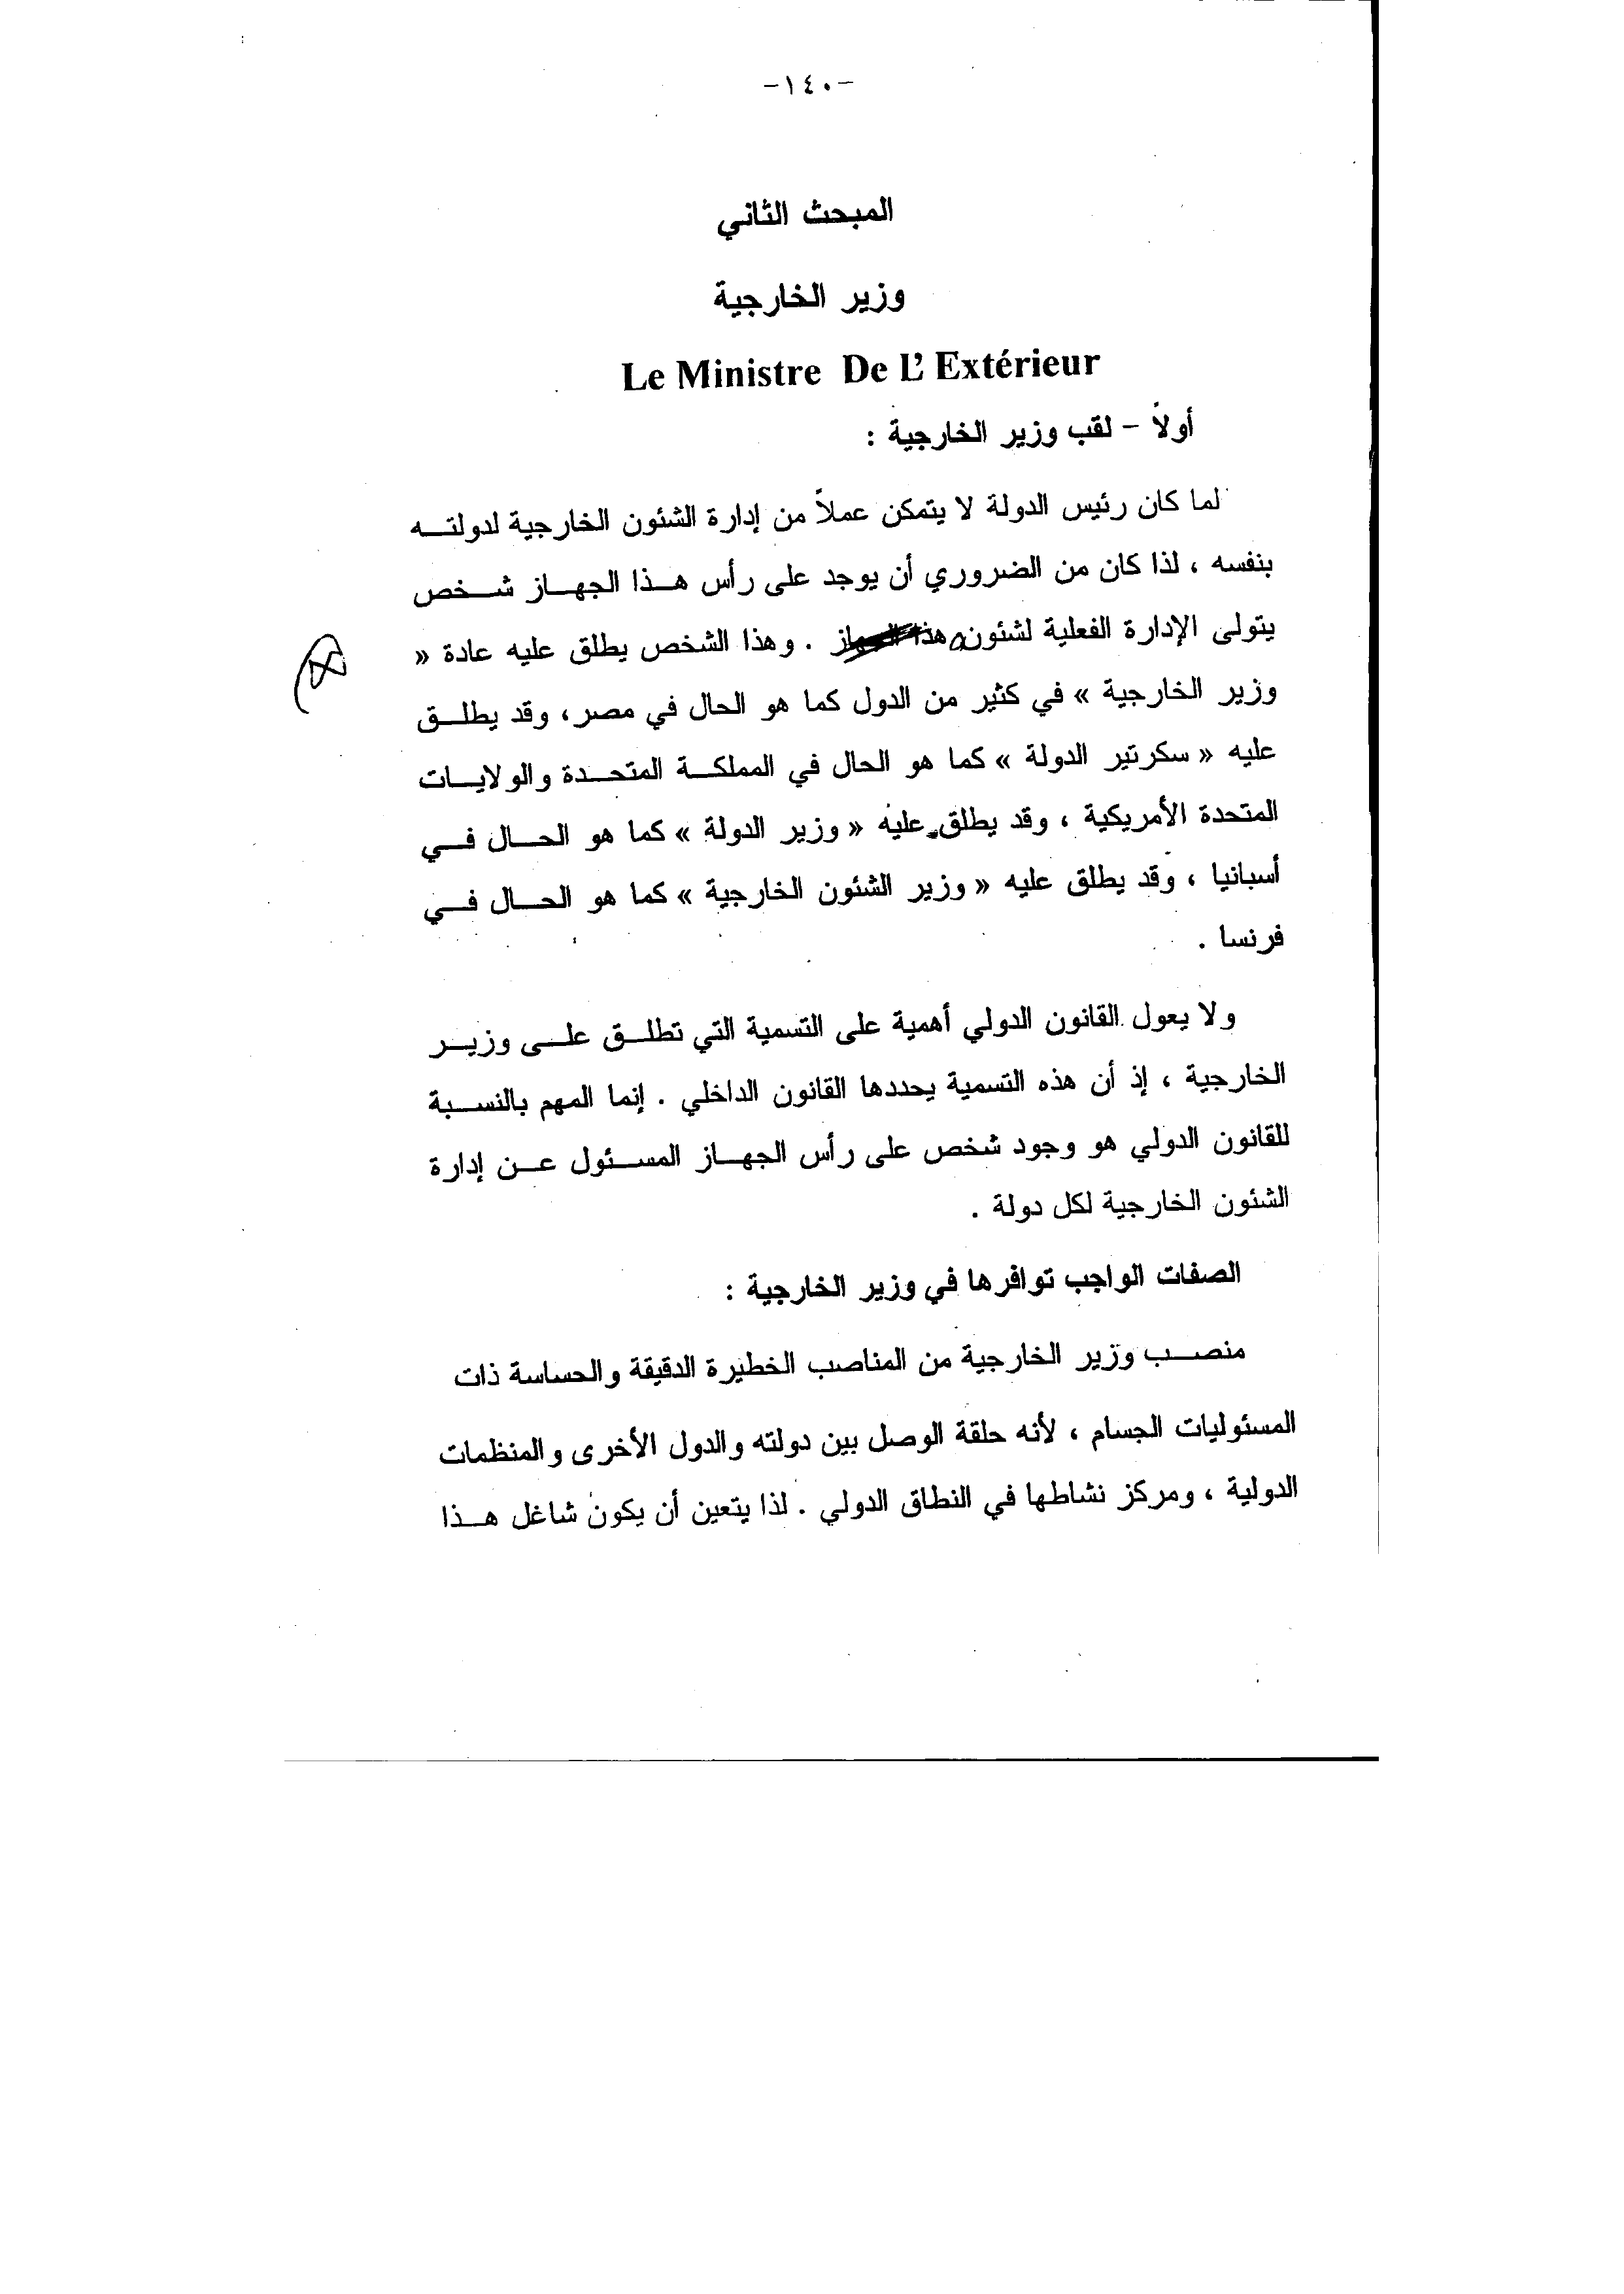 -١٤٠-
المبحث الثاني
وزير الخارجية
Le Ministre De L’ Extérieur
أولاً - لقب وزير الخارجية :
لما كان رئيس الدولة لا يتمكن عملاً من إدارة الشئون الخارجية لدولتـــه
بنفسه ، لذا كان من الضروري أن يوجد على رأس هــذا الجهــاز شــخص
يتولى الإدارة الفعلية لشئون هذا . وهذا الشخص يطلق عليه عادة «
وزير الخارجية » في كثير من الدول كما هو الحال في مصر، وقد يطلــق
عليه « سكرتير الدولة » كما هو الحال في المملكــة المتحــدة والولايــات
المتحدة الأمريكية ، وقد يطلق عليه « وزير الدولة » كما هو الحــال فــي
أسبانيا ، وقد يطلق عليه « وزير الشئون الخارجية » كما هو الحــال فــي
فرنسا .
ولا يعول القانون الدولي أهمية على التسمية التي تطلــق علــى وزيــر
الخارجية ، إذ أن هذه التسمية يحددها القانون الداخلي . إنما المهم بالنســبة
للقانون الدولي هو وجود شخص على رأس الجهــاز المســئول عــن إدارة
الشئون الخارجية لكل دولة .
الصفات الواجب توافرها في وزير الخارجية :
منصــب وزير الخارجية من المناصب الخطيرة الدقيقة والحساسة ذات
المسئوليات الجسام ، لأنه حلقة الوصل بين دولته والدول الأخرى والمنظمات
الدولية ، ومركز نشاطها في النطاق الدولي . لذا يتعين أن يكون شاغل هــذا